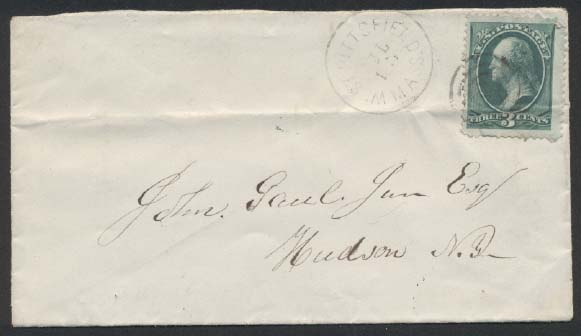 PITTSFIELD
MASS
U.S. POSTAGE
THREE 3 CENTS
John. Gaul. Jun Esq
Hudson N.Y.